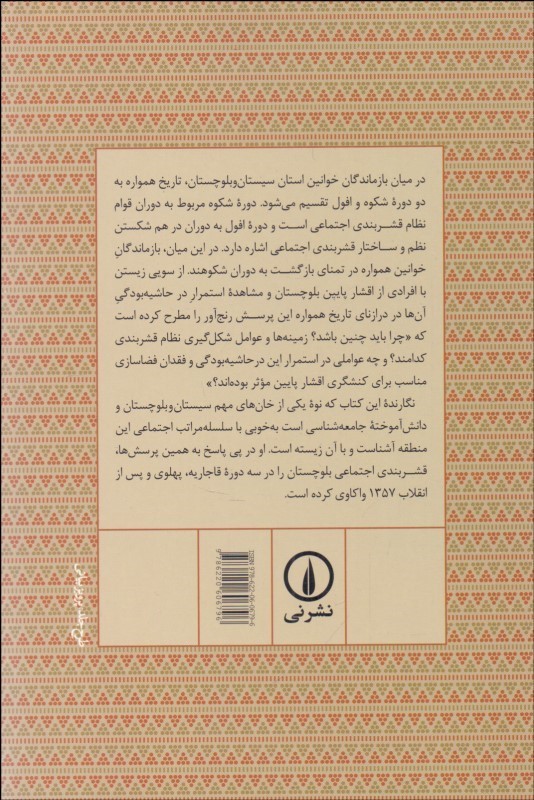 در میان بازماندگان خوانین استان سیستان‌وبلوچستان، تاریخ همواره به
دو دورهٔ شکوه و افول تقسیم می‌شود. دورهٔ شکوه مربوط به دوران قوام
نظام قشربندی اجتماعی است و دورهٔ افول به دوران در هم شکستن
نظم و ساختار قشربندی اجتماعی اشاره دارد. در این میان، بازماندگانِ
خوانین همواره در تمنای بازگشت به دوران شکوهند. از سویی زیستن
با افرادی از اقشار پایین بلوچستان و مشاهدهٔ استمرارِ در حاشیه‌بودگیِ
آن‌ها در درازنای تاریخ همواره این پرسش رنج‌آور را مطرح کرده است
که «چرا باید چنین باشد؟ زمینه‌ها و عوامل شکل‌گیری نظام قشربندی
کدامند؟ و چه عواملی در استمرار این درحاشیه‌بودگی و فقدان فضاسازی
مناسب برای کنشگری اقشار پایین مؤثر بوده‌اند؟»
نگارندهٔ این کتاب که نوهٔ یکی از خان‌های مهم سیستان‌وبلوچستان و
دانش‌آموختهٔ جامعه‌شناسی است به‌خوبی با سلسله‌مراتب اجتماعی این
منطقه آشناست و با آن زیسته است. او در پی پاسخ به همین پرسش‌ها،
قشربندی اجتماعی بلوچستان را در سه دورهٔ قاجاریه، پهلوی و پس از
انقلاب ۱۳۵۷ واکاوی کرده است.
نشرنی
ISBN 978-622-06-0679-6
9786220606796